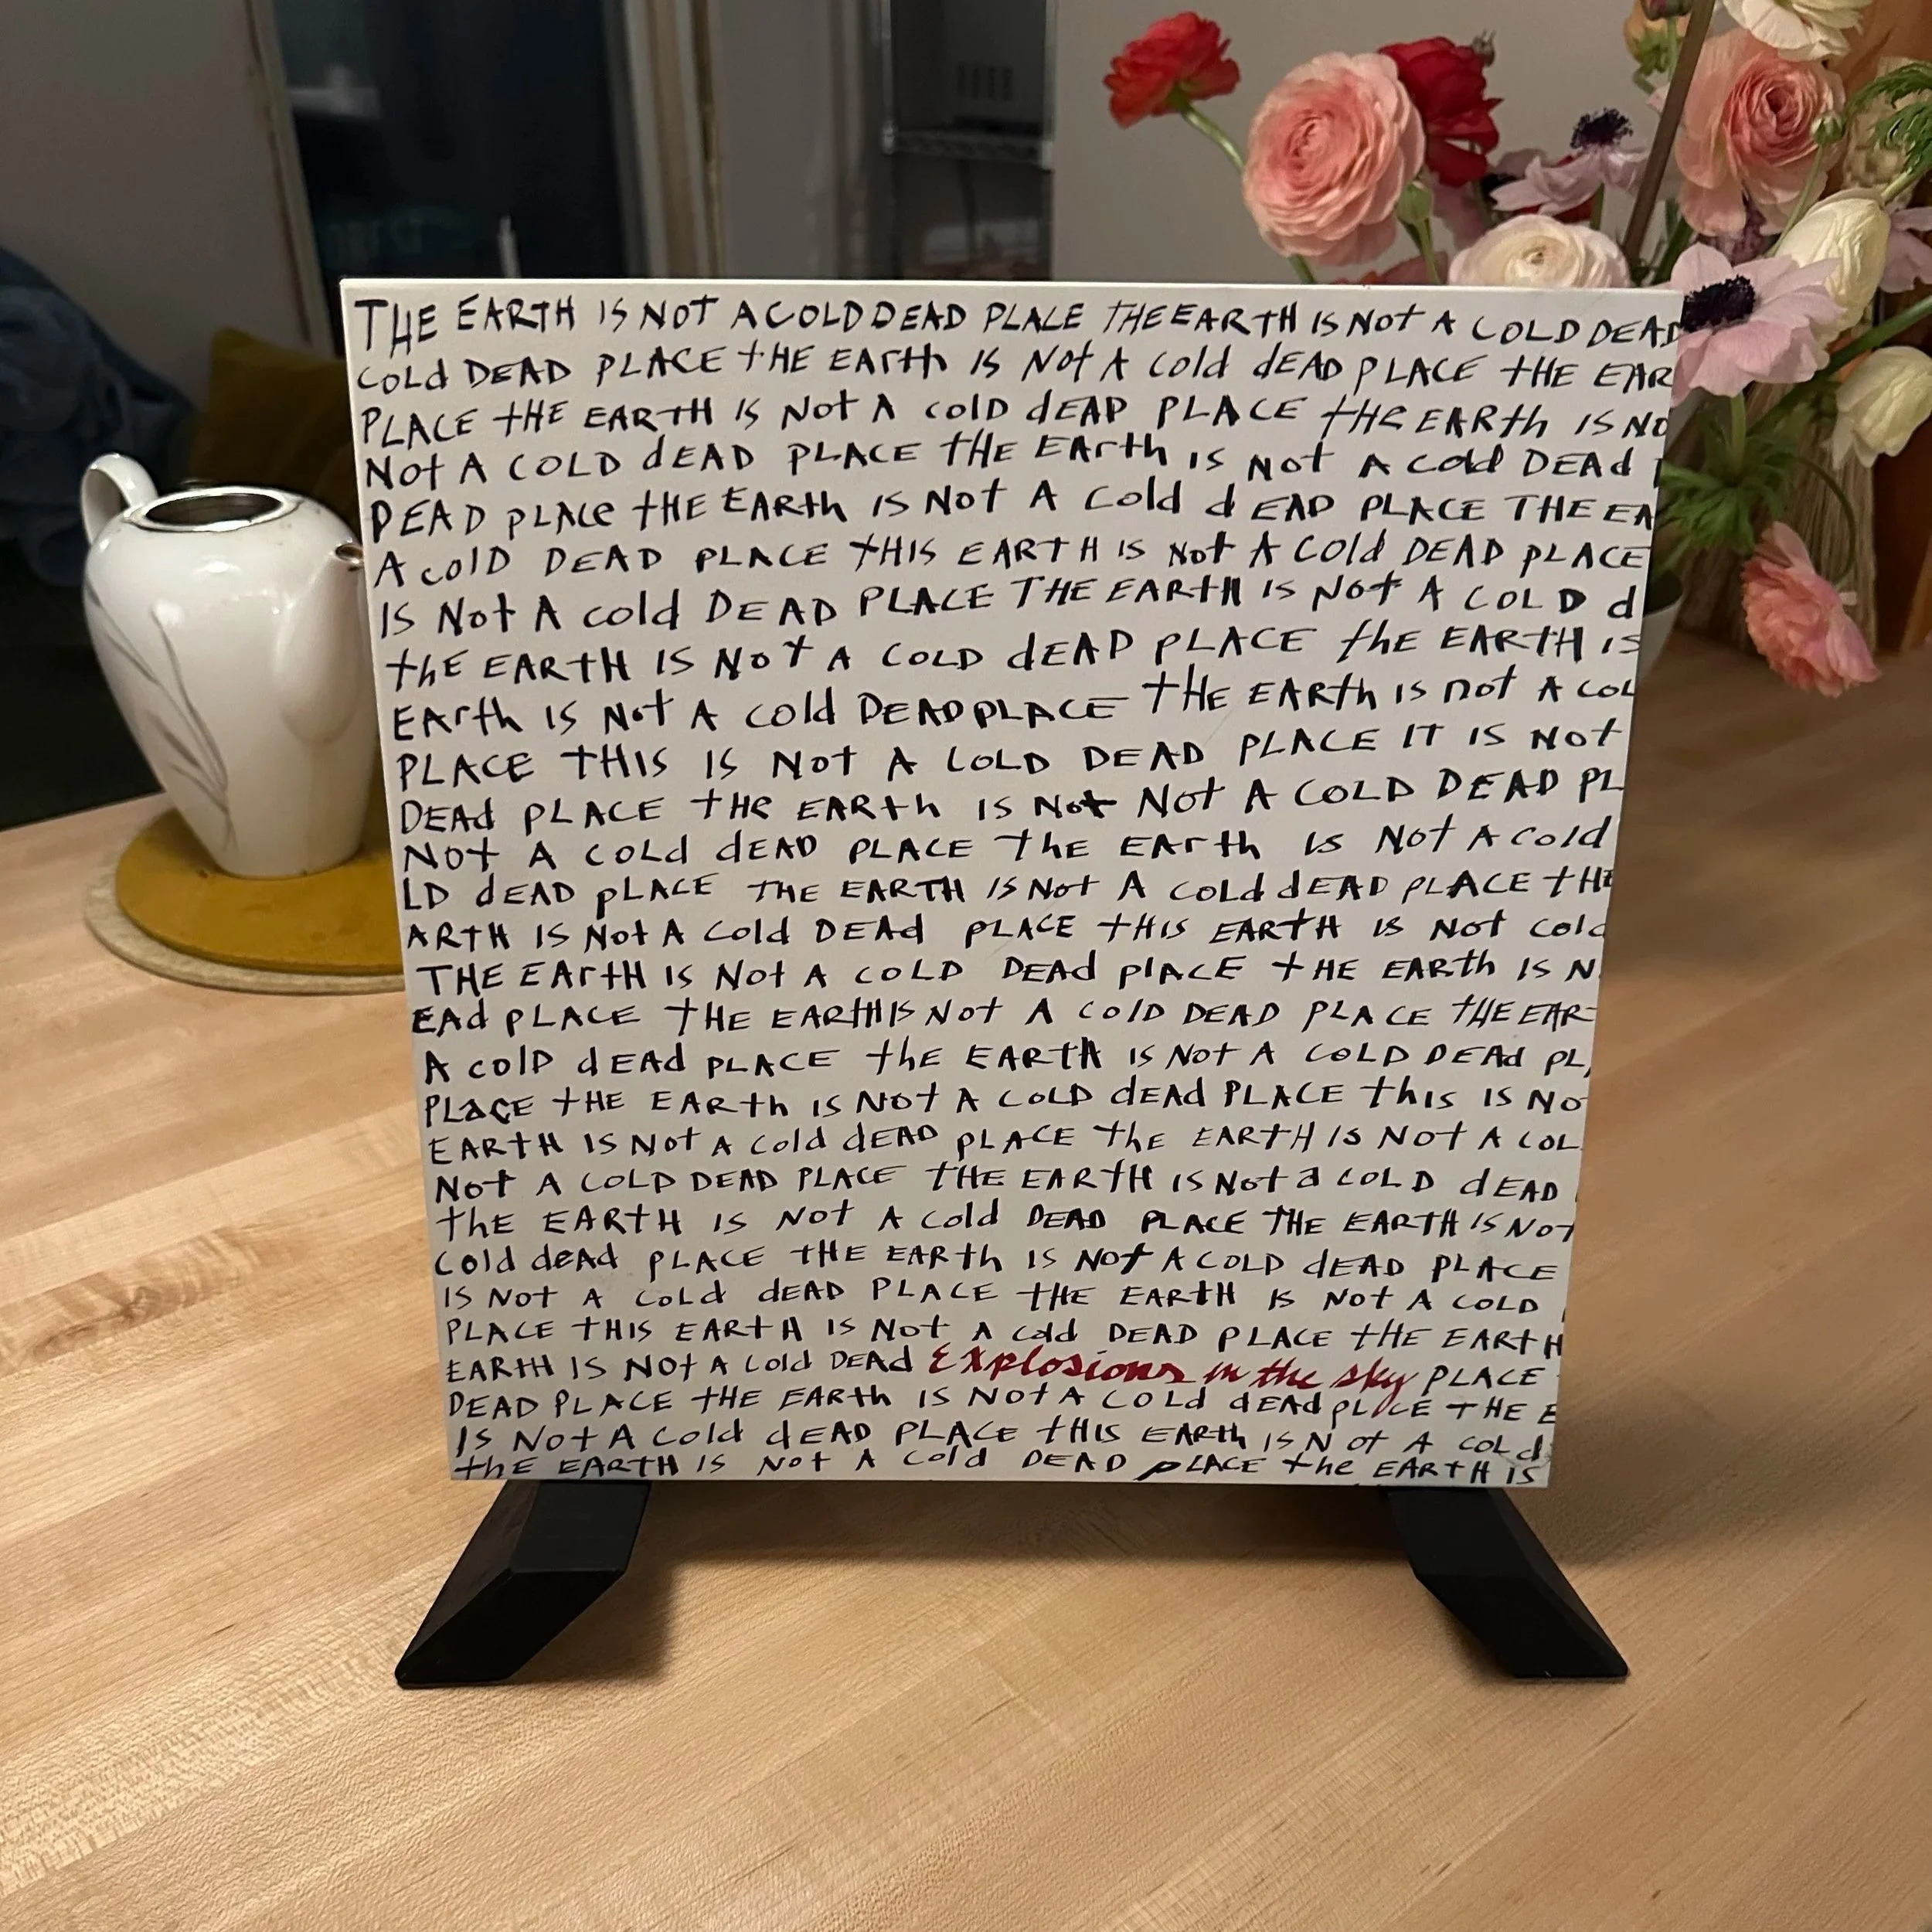 THE EARTH IS NOT A COLD DEAD PLACE THE EARTH IS NOT A COLD DEAD
COLd DEAD PLACE tHE EArth IS Not A cold dEAD PLACE tHE EAR
PLACE tHE EARTH IS Not A cold dEAD PLACE tHe EARth IS NO
Not A COLD dEAD PLACE tHE EArth is Not A cold DEAd
DEAD pLACe tHE EARth IS Not A Cold dEAD PLACE THE EA
A colD DEAD PLACE tHIS EARTH IS Not A COld DEAD pLACE
IS Not A cold DEAD PLACE THE EARtH IS Not A COLD d
thE EARtH IS Not A COLD dEAD PLACE the EARTH is
EArth IS Not A cold DEAD PLACE tHE EARth is not A COL
PLACE tHIS IS Not A COLD DEAD PLACE IT IS Not
DEAd PLACE tHe EARth IS Not Not A COLD DEAD PL
Not A COLd dEAD PLACE the EArth Is Not A cold
LD dEAD pLACE THE EARTH IS Not A COLd dEAD pLACE tHE
ARTH IS Not A Cold DEAd pLACE tHIS EARtH IS Not cold
THE EArtH IS Not A COLD DEAd plACE tHE EARth IS N
EAd pLACE tHE EARtH IS Not A ColD DEAD PLACE tHE EAR
A colD dEAd pLACE thE EARtH IS Not A COLD DEAd PL
PLaCE tHE EARth IS Not A COLD dEAd PLACE this IS No
EARTH IS Not A Cold dEAD pLACE the EARTH IS NOt A COL
Not A COLD DEAD PLACE tHE EARTH IS Not a COLD dEAD
thE EARtH IS Not A Cold DEAD PLACE THE EARTH IS NOT
Cold deAd pLACE tHE EARth IS Not A COLD dEAD PLACE
IS Not A COLd dEAD PLACE tHE EARtH IS Not A COLD
PLACE tHIS EARtH IS Not A cold DEAD PLACE tHE EARtH
EARtH IS NOt A Cold DEAd Explosions in the sky PLACE
DEAD PLACE tHE EARth IS NOt A COLd dEAd pLACE THE E
IS Not A Cold dEAD PLACE tHIS EARth IS Not A COLd
thE EARTH IS Not A Cold DEAD pLACE the EARtH IS